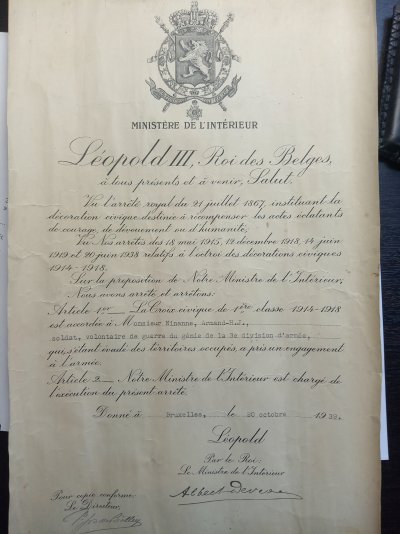 MINISTÈRE DE L'INTÉRIEUR
Léopold III, Roi des Belges,
à tous présents et à venir, Salut.
Vu l'arrêté royal du 21 juillet 1867, instituant la
décoration civique destinée à récompenser les actes éclatants
de courage, de dévouement ou d'humanité;
Vu Nos arrêtés des 18 mai 1915, 12 décembre 1918, 14 juin
1919 et 20 juin 1938 relatifs à l'octroi des décorations civiques
1914-1918.
Sur la proposition de Notre Ministre de l'Intérieur,
Nous avons arrêté et arrêtons:
Article 1er — La Croix civique de 1ère classe 1914-1918
est accordée à Monsieur Minanne, Armand-H.J.,
soldat, volontaire de guerre du génie de la 3e division d'armée,
qui, s'étant évadé des territoires occupés, a pris un engagement
à l'armée.
Article 2 — Notre Ministre de l'Intérieur est chargé de
l'exécution du présent arrêté.
Donné à Bruxelles, le 20 octobre 1939.
Léopold
Par le Roi:
Le Ministre de l'Intérieur
Albert Devèze
Pour copie conforme:
Le Directeur,